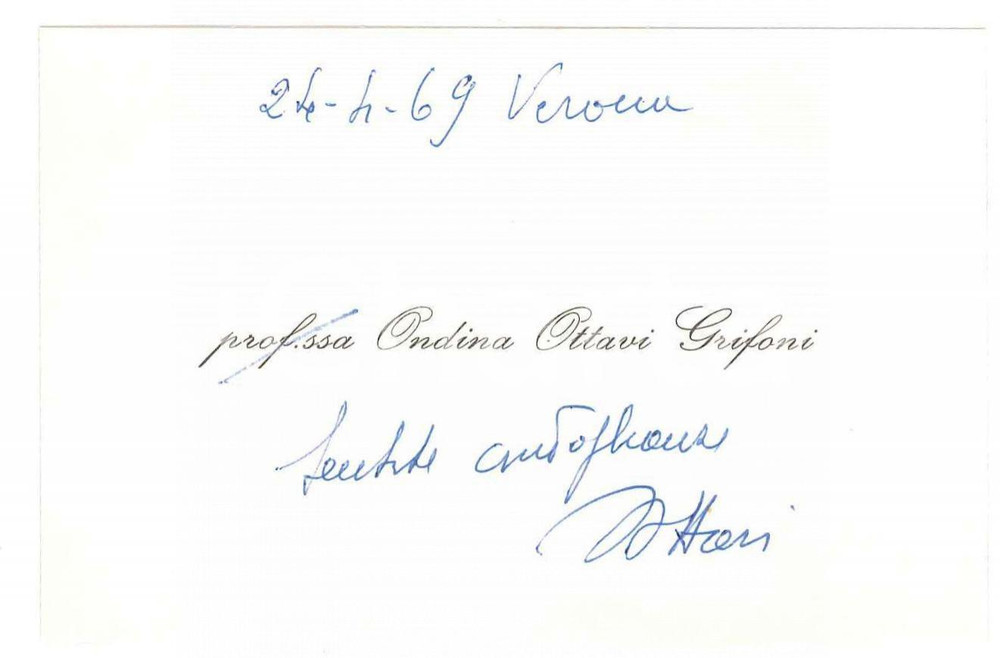 24-4-69 Verona
prof.ssa Ondina Ottavi Grifoni
Sentite condoglianze
Ottavi